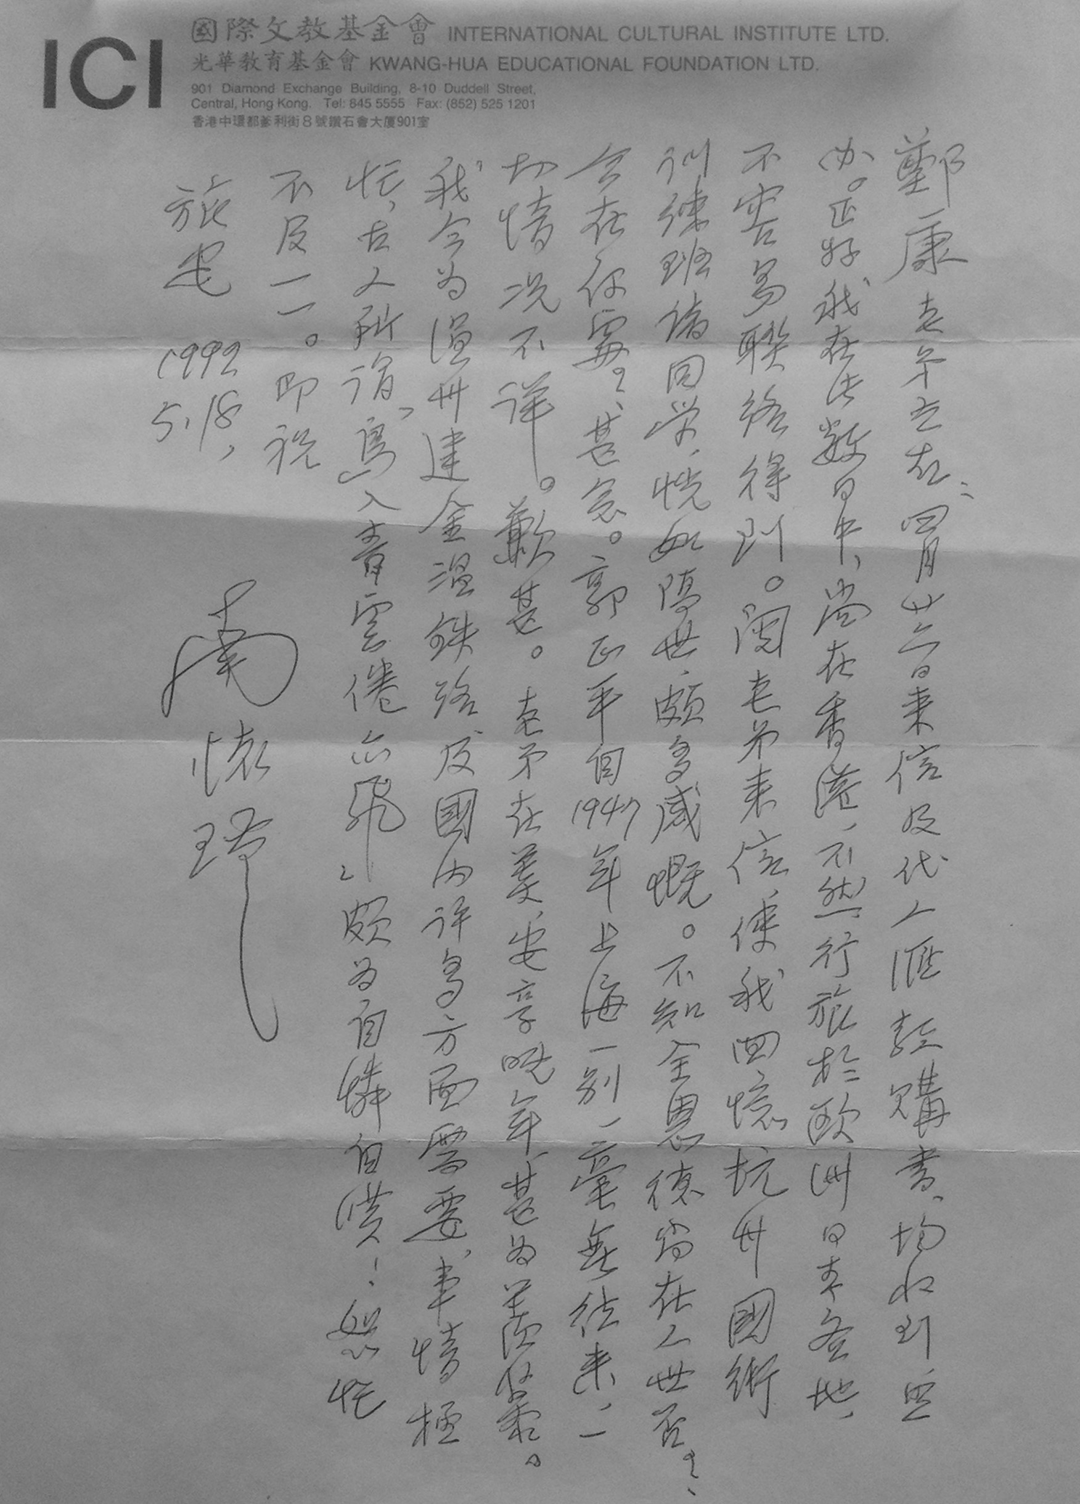 ICI
國際文教基金會 INTERNATIONAL CULTURAL INSTITUTE LTD.
光華教育基金會 KWANG-HUA EDUCATIONAL FOUNDATION LTD.
901 Diamond Exchange Building, 8-10 Duddell Street,
Central, Hong Kong. Tel: 845 5555 Fax: (852) 525 1201
香港中環都爹利街8號鑽石會大廈901室
鄭康老弟立右：四月廿六日來信及代人匯款購書、均收到無
如。正好我在此數日中、尚在香港、不然、行旅於歐洲日本各地、
不容易聯絡得到。閱老弟來信、使我回憶杭州國術
訓練班諸同學、恍如隔世、頗多感慨。不知全恩德尚在人世否？、
今在何處？、甚念。郭正平自1947年上海一別、毫無往來、一
切情況不詳。歉甚。老弟在美、安享晚年、甚為羨慕。
我今為溫州建金溫鐵路及國內許多方面需要、事情極
忙、古人所謂、「鳥入青雲倦亦飛」頗為自憐自笑！匆忙
不及一一。即祝
旅安 1992
5.18、
南懷瑾